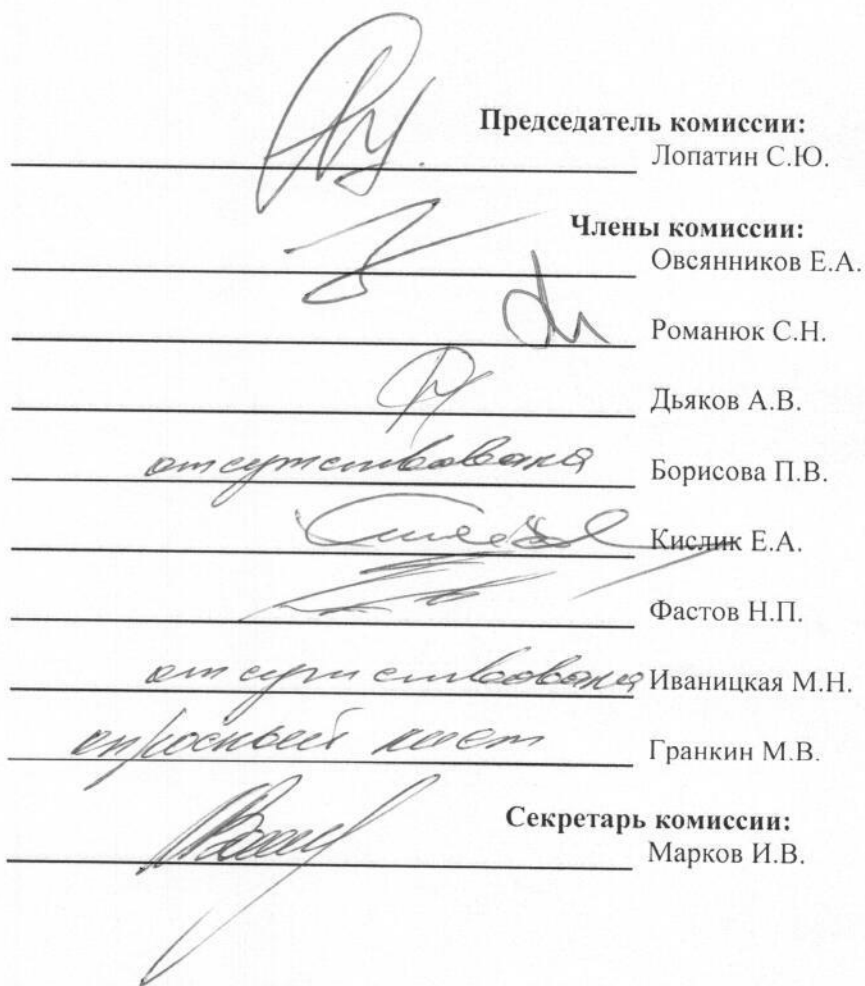 Председатель комиссии:
Лопатин С.Ю.
Члены комиссии:
Овсянников Е.А.
Романюк С.Н.
Дьяков А.В.
отсутствовала Борисова П.В.
Кислик Е.А.
Фастов Н.П.
отсутствовала Иваницкая М.Н.
опросный лист Гранкин М.В.
Секретарь комиссии:
Марков И.В.